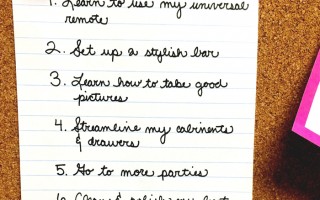 1. Learn to use my universal
remote
2. Set up a stylish bar
3. Learn how to take good
pictures
4. Streamline my cabinents
& drawers
5. Go to more parties
6.